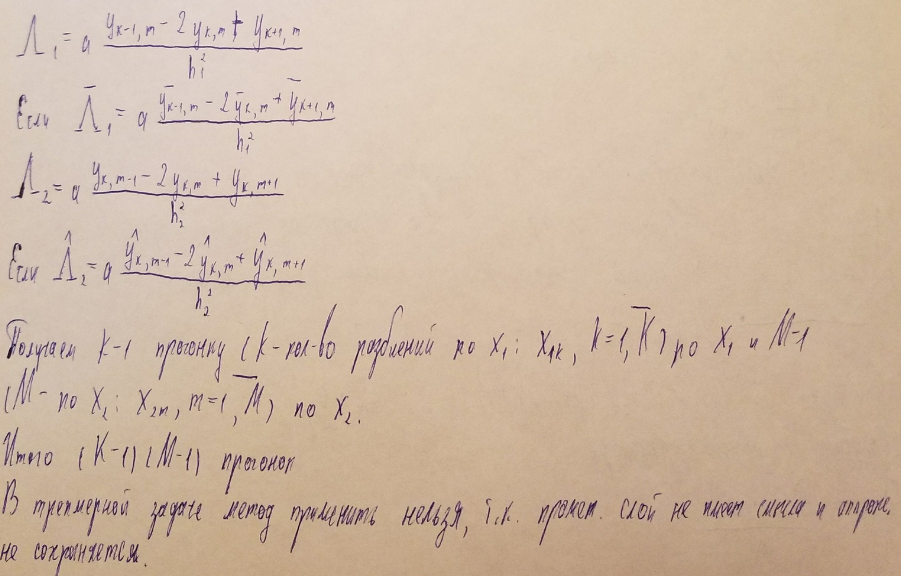 Λ₁ = a (y_{k-1,m} - 2y_{k,m} + y_{k+1,m}) / h₁²
Если Λ̄₁ = a (ȳ_{k-1,m} - 2ȳ_{k,m} + ȳ_{k+1,m}) / h₁²
Λ₂ = a (y_{k,m-1} - 2y_{k,m} + y_{k,m+1}) / h₂²
Если Λ̂₂ = a (ŷ_{k,m-1} - 2ŷ_{k,m} + ŷ_{k,m+1}) / h₂²
Получаем K-1 прогонку (K - кол-во разбиений по x₁: x_{1k}, k = \overline{1, K}) по x₁ и M-1
(M - по x₂: x_{2m}, m = \overline{1, M}) по x₂.
Итого (K-1)(M-1) прогонок
В трехмерной задаче метод применить нельзя, т.к. промеж. слой не имеет смысла и аппрокс.
не сохраняется.